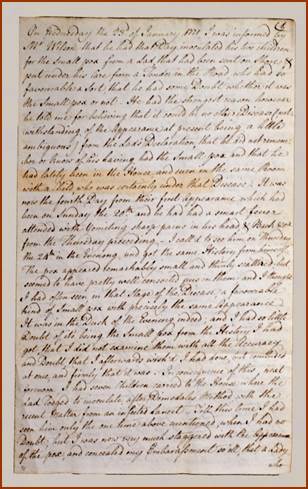 On Wednesday the 23d of January 1771 I was informed by
Mr Wilson that he had that Day inoculated his two children
for the Small pox from a Lad that had been sent on Shore &
put under his care from a Tender in the Road who had so
favourable a Sort that he had some Doubt whether it was
the Small pox or not. He had the strongest reason however
he told me for believing that it could be no other Disease (not
withstanding of the Appearance at present being a little
ambiguous) from the Lads Declaration that he did not remem
ber or know of his having had the Small pox and that he
had lately been in the House and even in the same Room
with a Child who was certainly under that Disease. It was
now the fourth Day from their first appearance which had
been on Sunday the 20th and he had had a smart fever
attended with Vomiting sharp pains in his head & Back &c
from the Thursday preceeding. I call'd to see him on Thursday
the 24th in the Evening, and got the same History from himself
The pox appeared remarkably small and thinly scattered but
seemed to have pretty well consisted, and I thought
I had often seen in that Stage of the Disease, a favourable
kind of Small pox with precisely the same Appearance.
It was in the Dusk of the Evening indeed, and I had so little
Doubt of its being the Small pox from the History I had
got, that I did not examine them with all the Accuracy
and Doubt that I afterwards wish'd I had done but concluded
at once and firmly that it was. In consequence of this, next
forenoon I had seven Children carried to the House where the
Lad lodged to inoculate after Dimsdales Method with the
recent Matter from an infected Subject. Till this time I had
seen him only the one time above mentioned, when I had no
Doubt, but I was now very much staggered with the Appearance
of the pox, and concealed my Embarrassment so ill, that a Lady
who